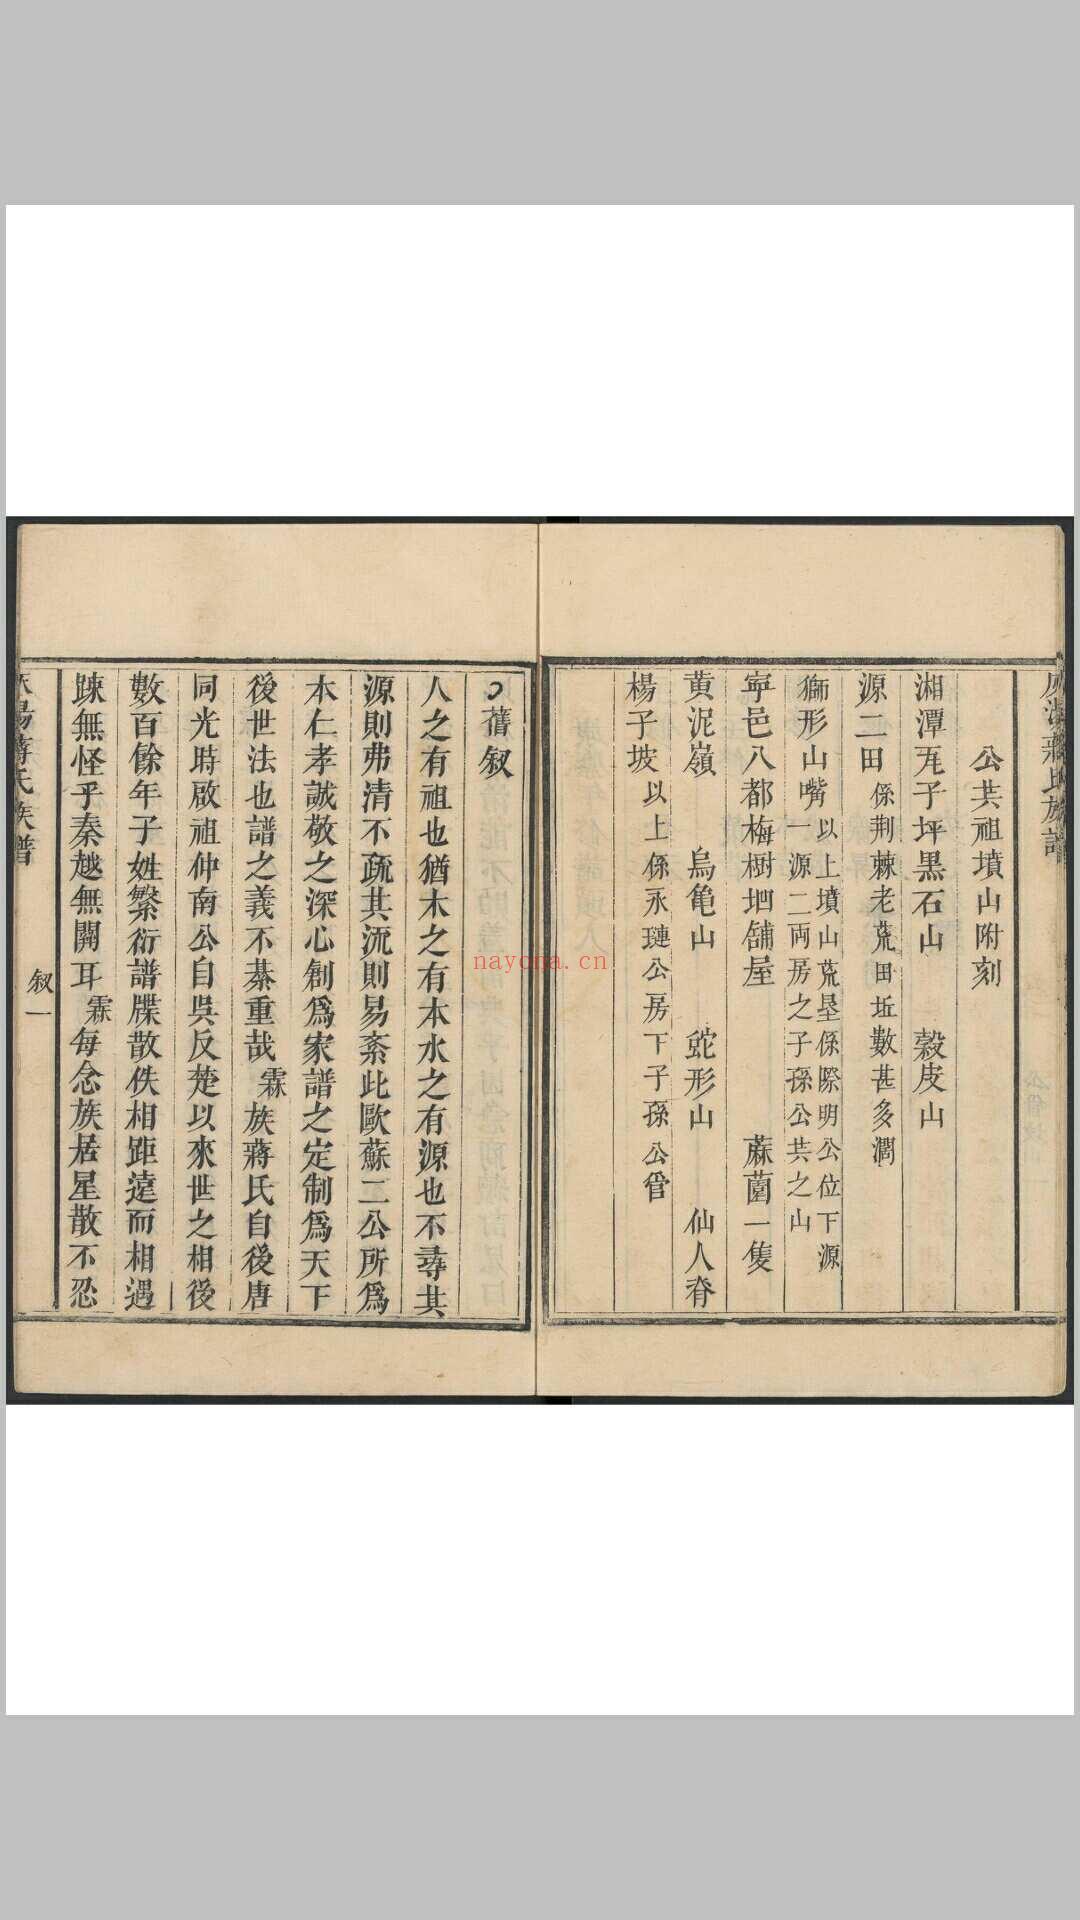 公共祖墳山附刻
湘潭𤬪子坪黒石山　榖皮山
源二田係荆棘老荒田坵數甚多濶
獅形山嘴以上墳山荒垦係際明公位下源
一源二両房之子孫公共之山
寕邑八都梅樹垇舖屋　蔴薗一隻
黄泥嶺　烏亀山　蛇形山　仙人脊
楊子坡以上係永璉公房下子孫公管
舊叙
人之有祖也猶木之有本水之有源也不尋其
源則弗清不疏其流則易紊此歐蘇二公所爲
本仁孝誠敬之深心創爲家譜之定制爲天下
後世法也譜之義不綦重哉霖族蔣氏自後唐
同光時啟祖仲南公自吳反楚以來世之相後
數百餘年子姓繁衍譜牒散佚相距遠而相遇
踈無怪乎秦越無關耳霖每念族居星散不忍
蔣氏族譜
叙一
nayona.cn